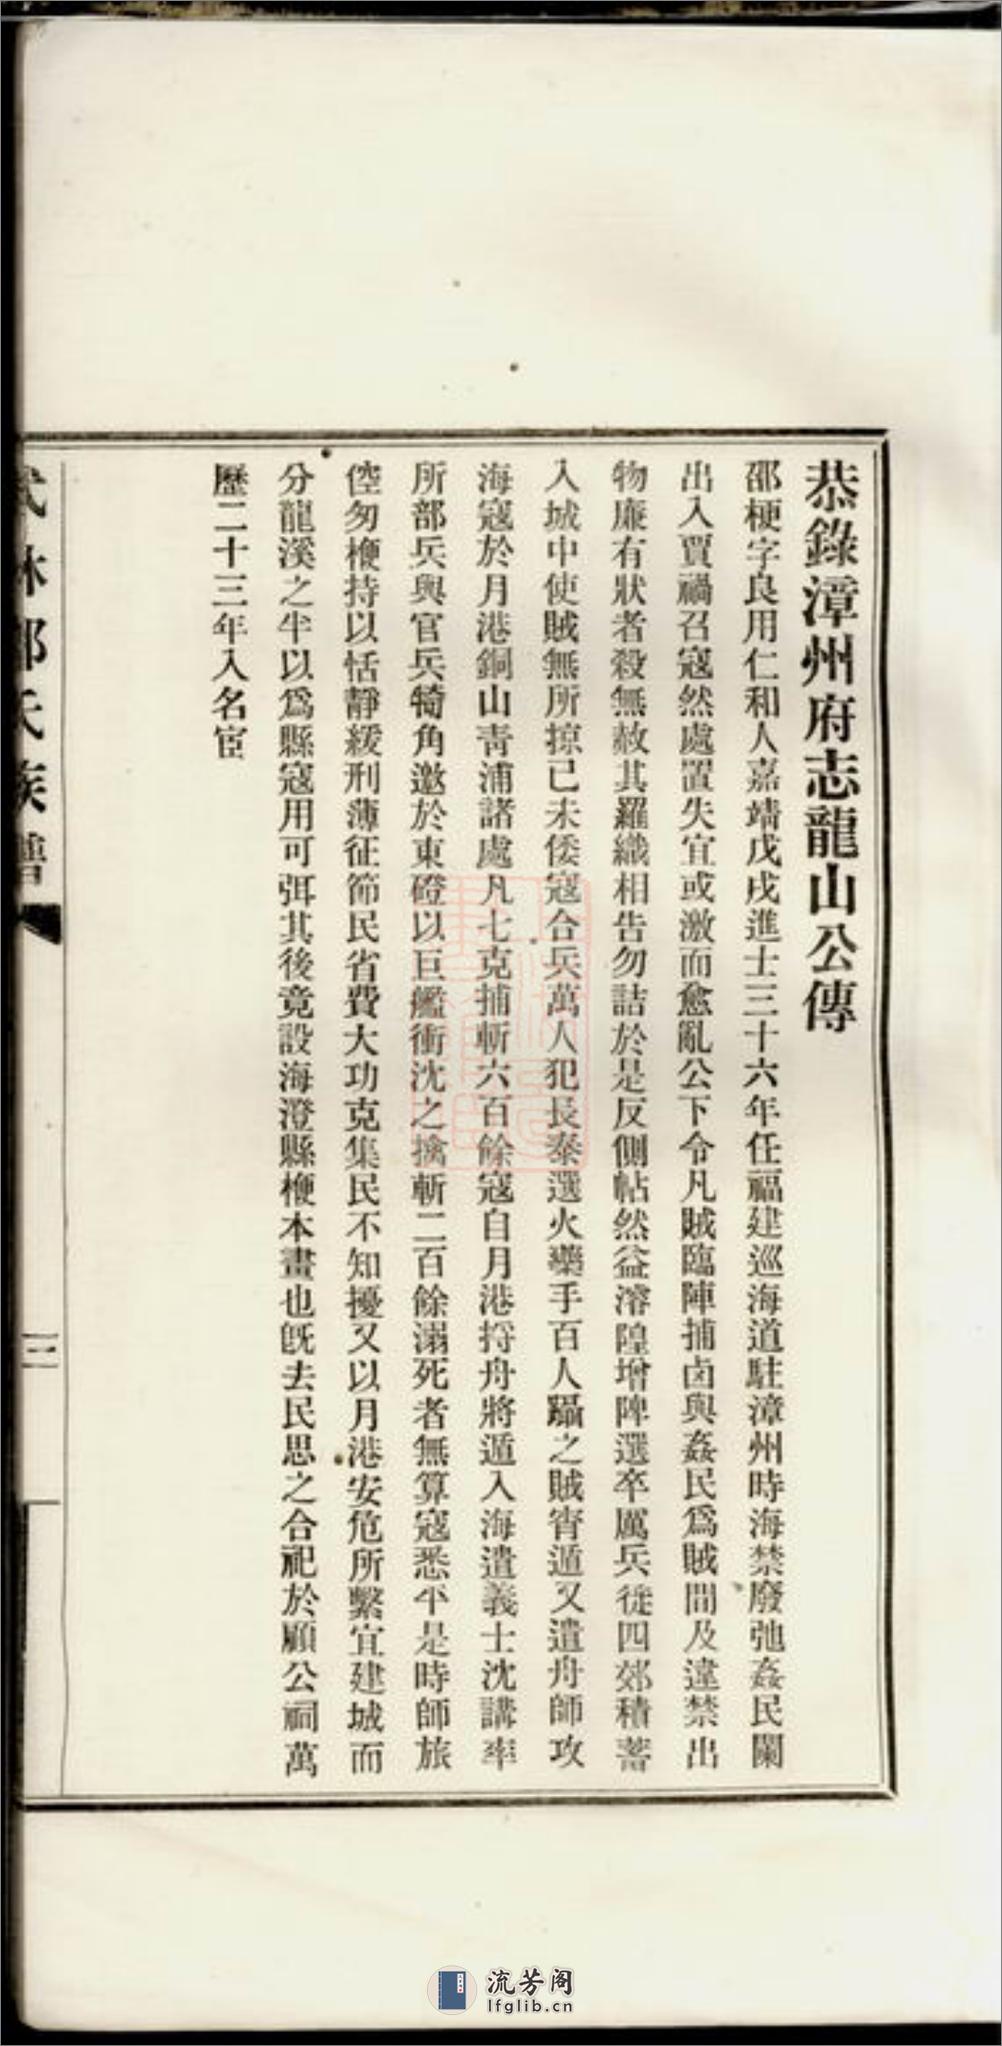 恭錄漳州府志龍山公傳
邵梗字良用仁和人嘉靖戊戌進士三十六年任福建巡海道駐漳州時海禁廢弛姦民闌
出入賈禍召寇然處置失宜或激而愈亂公下令凡賊臨陣捕卤與姦民爲賊間及違禁出
物廉有狀者殺無赦其羅織相告勿詰於是反側帖然益濬隍增陴選卒厲兵徙四郊積蓄
入城中使賊無所掠己未倭寇合兵萬人犯長泰選火藥手百人躡之賊宵遁又遣舟師攻
海寇於月港銅山青浦諸處凡七克捕斬六百餘寇自月港捋舟將遁入海遣義士沈講率
所部兵與官兵犄角邀於東磴以巨艦衝沈之擒斬二百餘溺死者無算寇悉平是時師旅
倥匆楩持以恬靜緩刑薄征節民省費大功克集民不知擾又以月港安危所繫宜建城而
分龍溪之半以爲縣寇用可弭其後竟設海澄縣楩本畫也旣去民思之合祀於顧公祠萬
歷二十三年入名宦
武林邵氏族譜
三
流芳阁
lfglib.cn